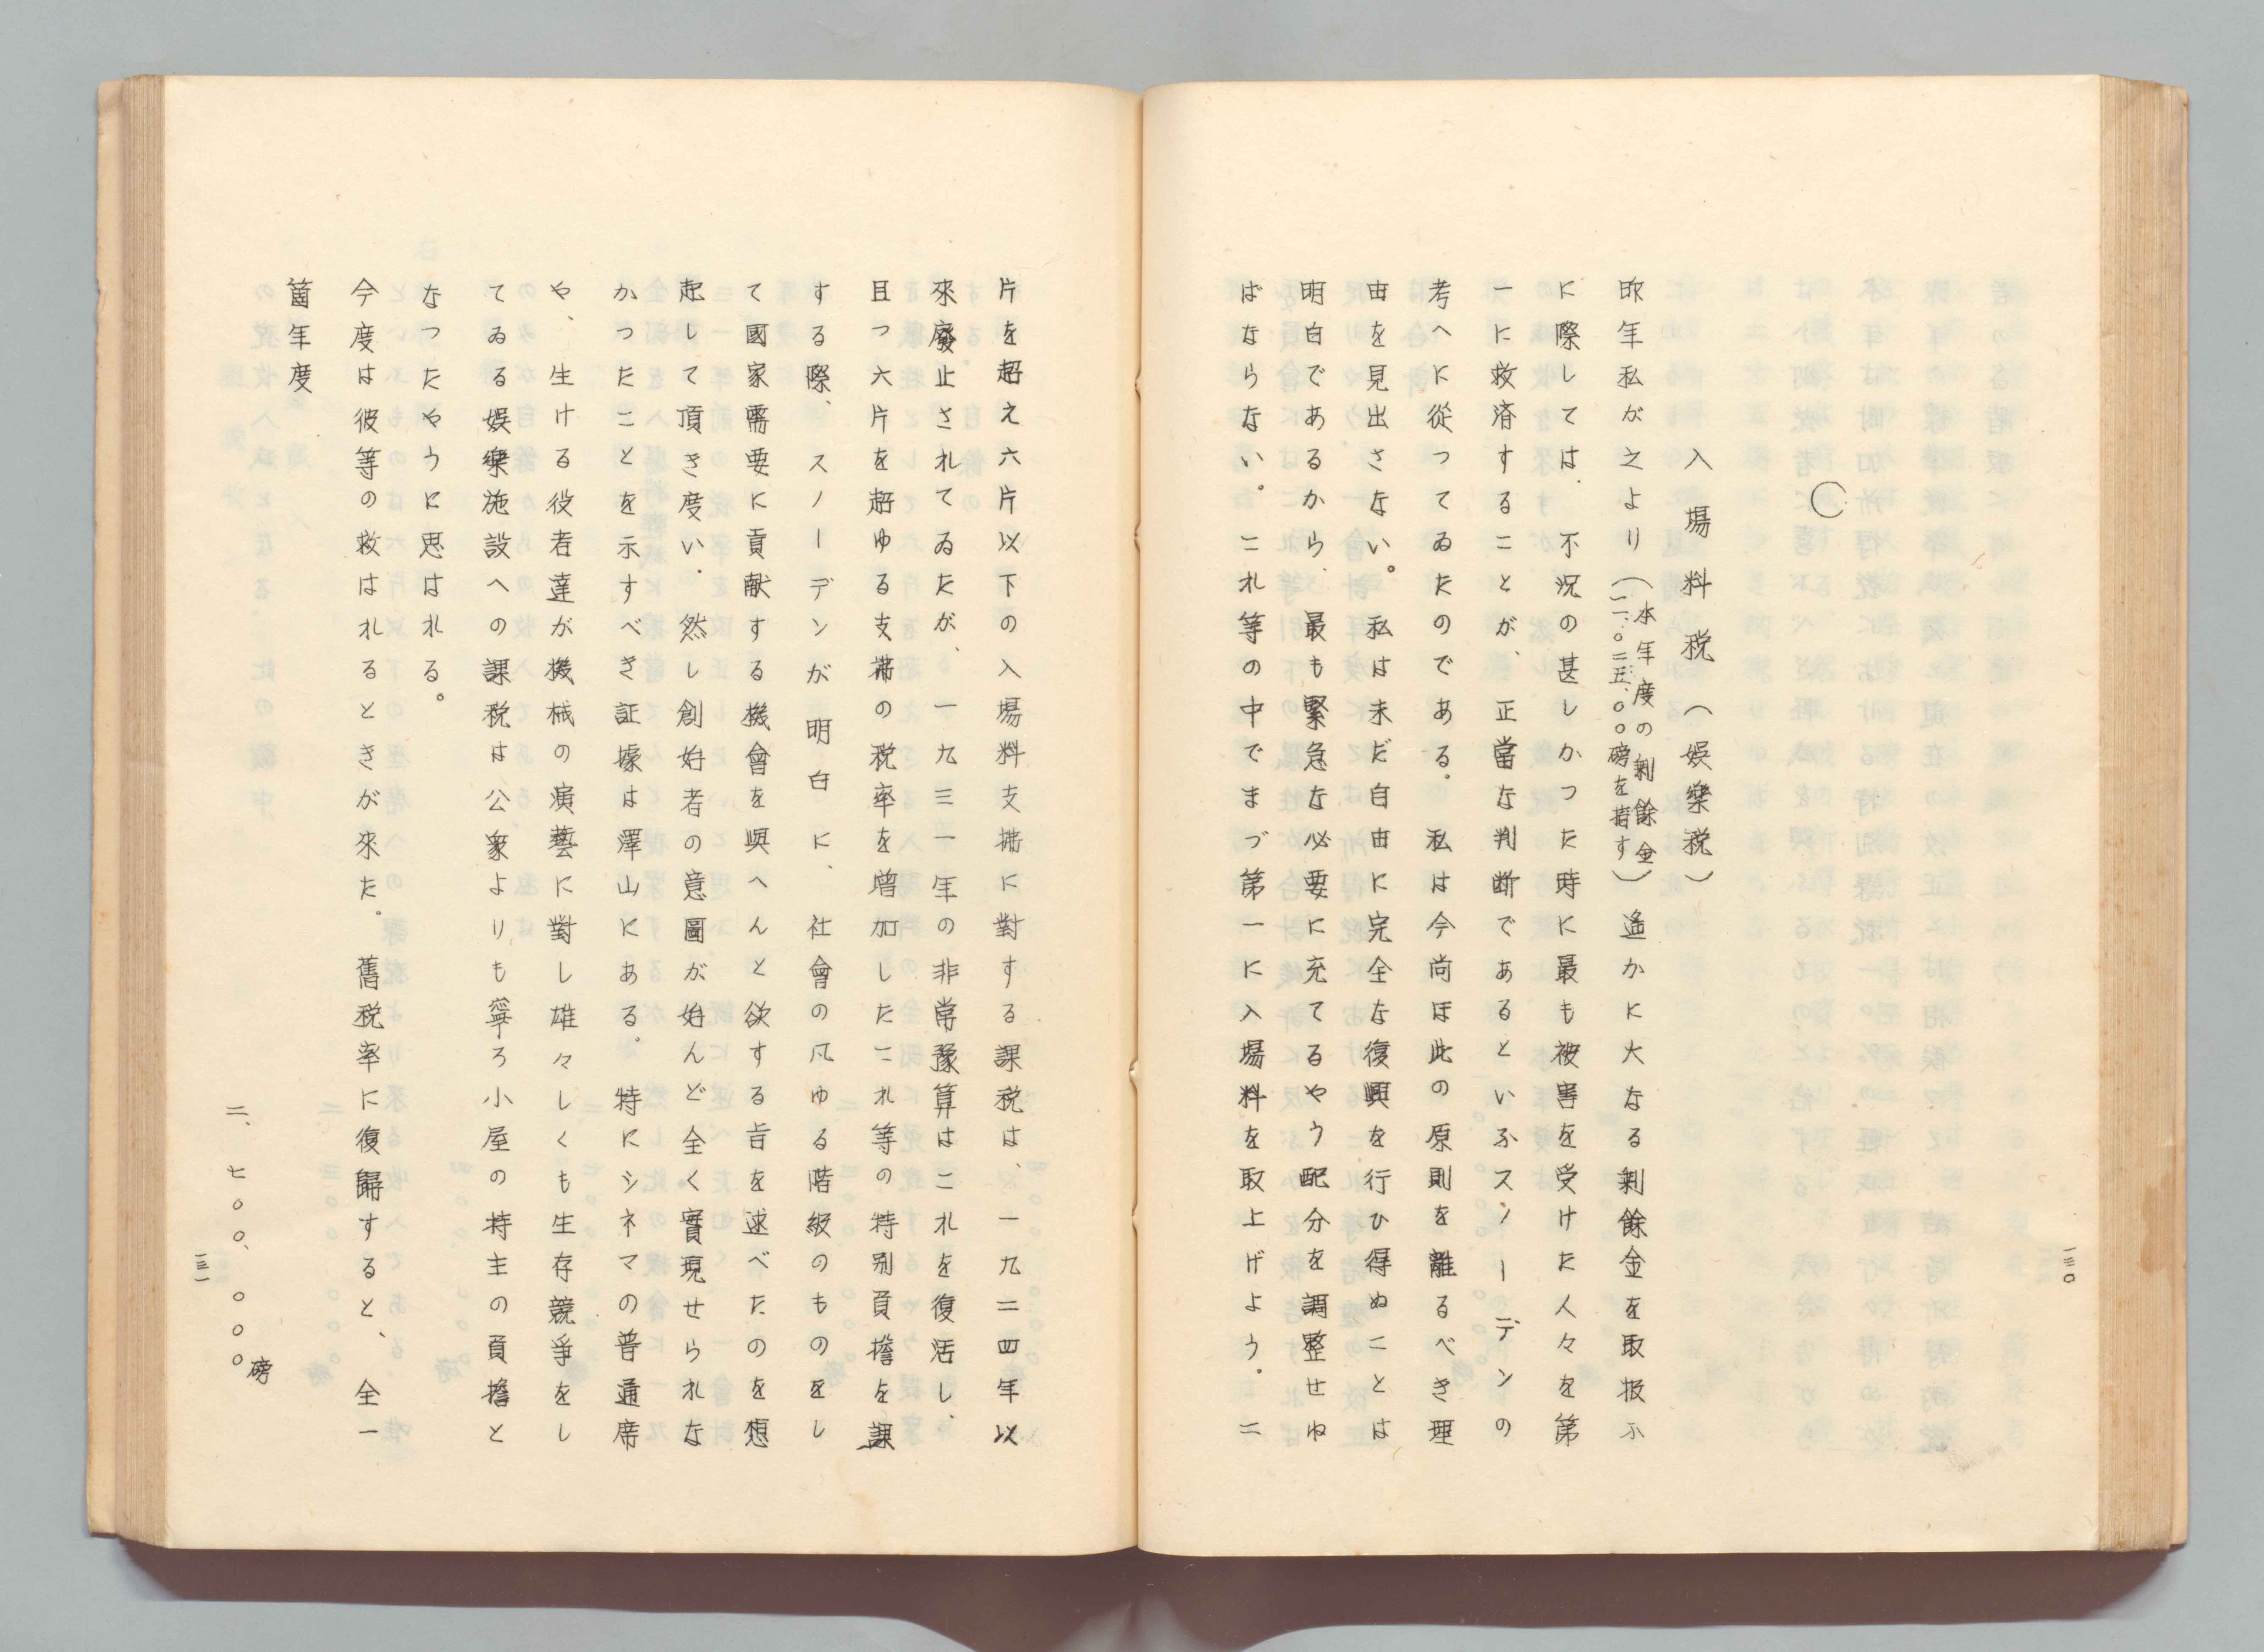 入場料税（娯樂税）
昨年私が之より（本年度の剰餘金
を指す）遙かに大なる剰餘金を取扱ふ
に際しては、不況の甚しかつた時に最も被害を受けた人々を第
一に救済することが、正當な判断であるといふスノーデンの
考へに從つてゐたのである。私は今尚ほ此の原則を離るべき理
由を見出さない。私は未だ自由に完全な復興を行ひ得ぬことは
明白であるから、最も緊急な必要に充てるやう配分を調整せね
ばならない。これ等の中でまづ第一に入場料を取上げよう。二
一三〇
片を超え六片以下の入場料支拂に對する課税は、一九二四年以
來廢止されてゐたが、一九三一年の非常豫算はこれを復活し、
且つ六片を超ゆる支拂の税率を増加したこれ等の特別負擔を課
する際、スノーデンが明白に、社會の凡ゆる階級のものをし
て國家需要に貢献する機會を與へんと欲する旨を述べたのを想
起して頂き度い．然し創始者の意圖が殆んど全く實現せられな
かつたことを示すべき証據は澤山にある。特にシネマの普通席
や、生ける役者達が機械の演藝に對し雄々しくも生存競爭をし
てゐる娯樂施設への課税は公衆よりも寧ろ小屋の持主の負擔と
なつたやうに思はれる。
今度は彼等の救はれるときが來た。舊税率に復歸すると、全一
箇年度
二、七〇〇、〇〇〇磅
一三一